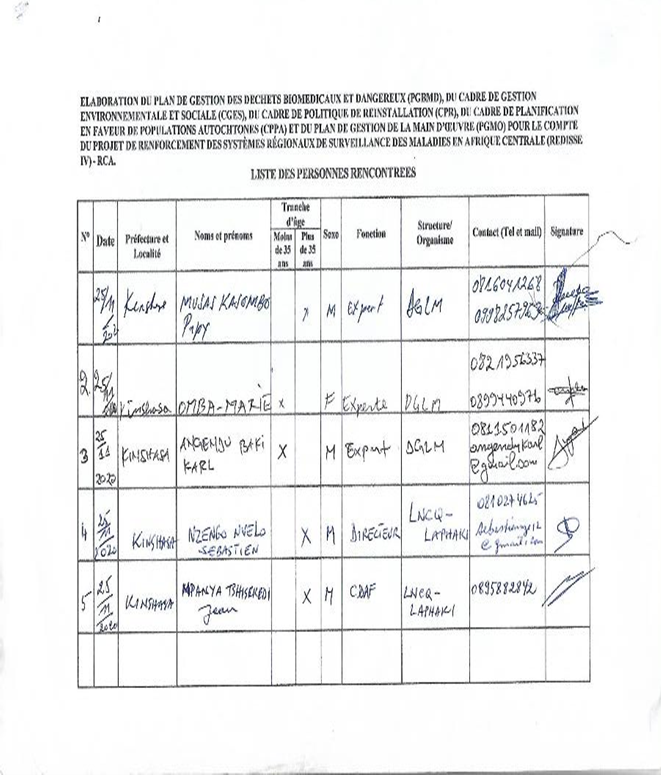 ELABORATION DU PLAN DE GESTION DES DECHETS BIOMEDICAUX ET DANGEREUX (PGBMD), DU CADRE DE GESTION
ENVIRONNEMENTALE ET SOCIALE (CGES), DU CADRE DE POLITIQUE DE REINSTALLATION (CPR), DU CADRE DE PLANIFICATION
EN FAVEUR DE POPULATIONS AUTOCHTONES (CPPA) ET DU PLAN DE GESTION DE LA MAIN D'ŒUVRE (PGMO) POUR LE COMPTE
DU PROJET DE RENFORCEMENT DES SYSTÈMES RÉGIONAUX DE SURVEILLANCE DES MALADIES EN AFRIQUE CENTRALE (REDISSE
IV) - RCA.
LISTE DES PERSONNES RENCONTREES
N° Date Préfecture et Localité Noms et prénoms Tranche d'âge Moins de 35 ans Plus de 35 ans Sexe Fonction Structure/ Organisme Contact (Tel et mail) Signature
25/11 Kinshasa M Expert DGLM 0816041268
2 25/11 Kinshasa OMBA-MARIE x F Experte DGLM 0821956337
0899440976
3 25/11 2020 KINSHASA ANGENDU BAKI X M Expert DGLM 0811501182
KARL angendukarl
@gmail.com
4 25/11/2020 KINSHASA NZENGO X M DIRECTEUR LNCQ- 0810274625
SEBASTIEN LAPHAKI
5 25/11/2020 KINSHASA MPANYA TSHISEKEDI X M CDAF LNCQ- 0895882842
Jean LAPHAKI